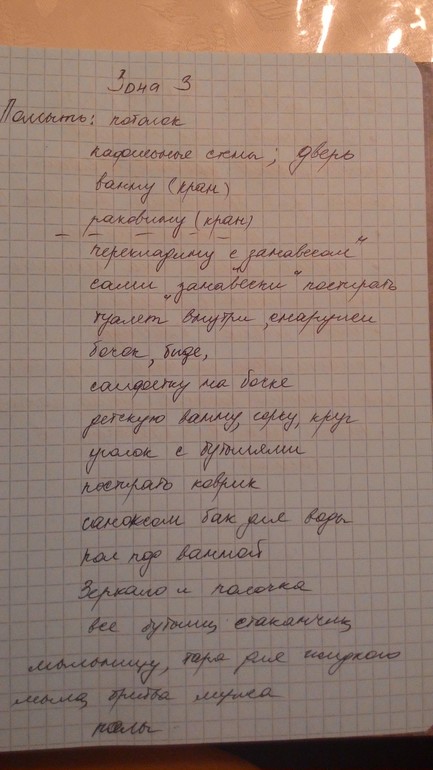 Зона 3
Помыть: потолок
кафельные стены; дверь
ванну (кран)
раковину (кран)
перекладину с занавесом"
сами "занавески" постирать
туалет внутри, снаружи
бочок, биде,
салфетку на бочке
детскую ванну, горку, круг
уголок с бутылями
постирать коврик
саноксом бак для воды
пол под ванной
Зеркало и полочка
все бутылки стаканчик
мыльницу, тара для жидкого
мыла, бритва мужа
полы